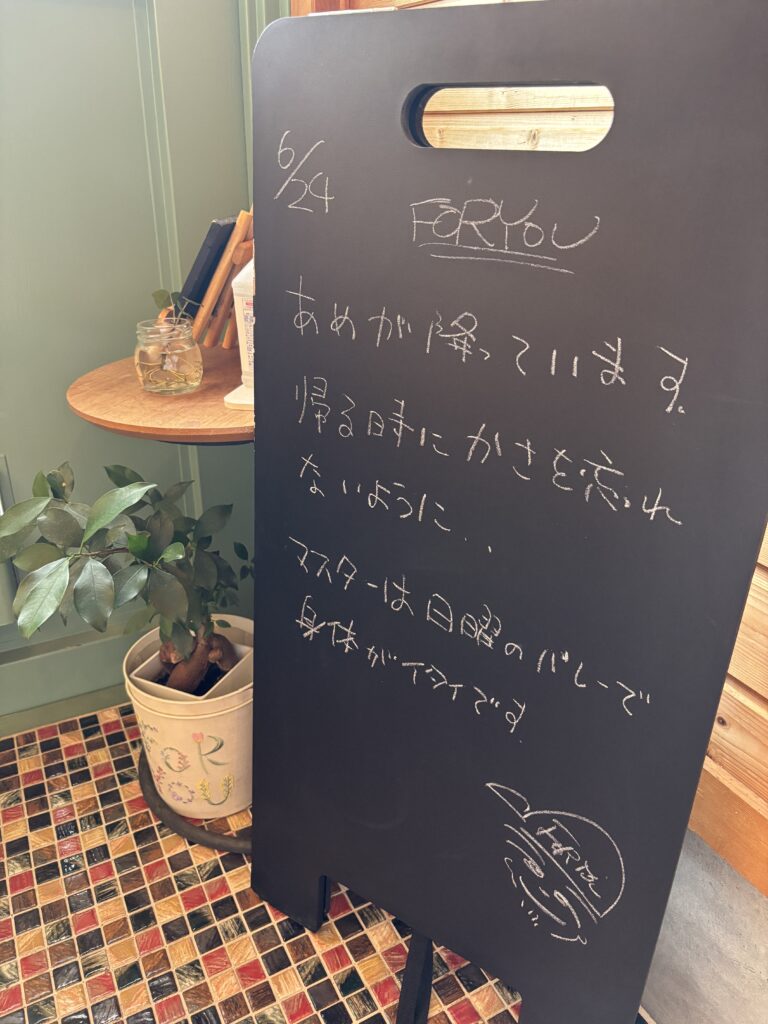 6/24
FORYOU
あめが降っています。
帰る時にかさを忘れ
ないように..
マスターは日曜のバレーで
身体がイタイです
FOR YOU
FOR
YOU